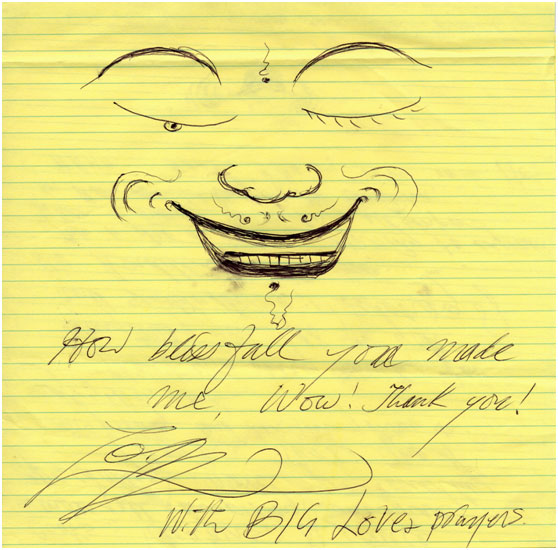 How blissfull you made
me, Wow! Thank you!
With BIG Love & prayers.